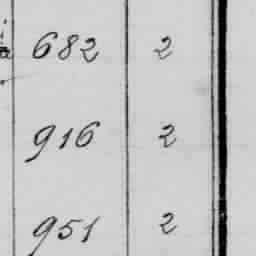 682 2
916 2
951 2